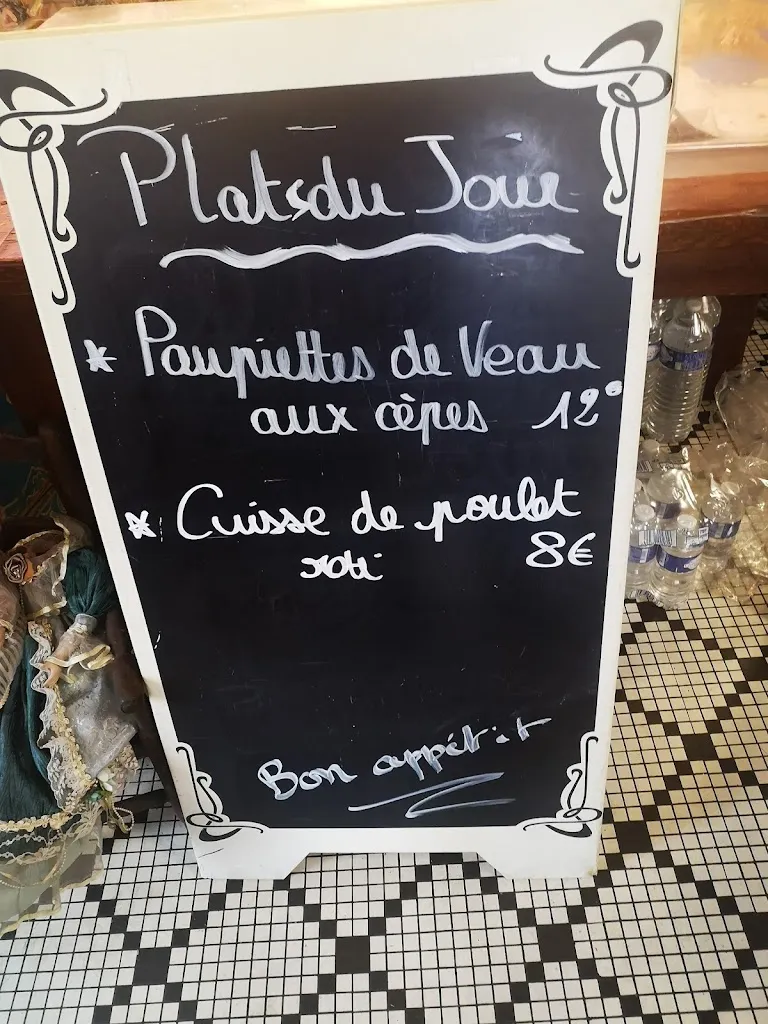 Plats du Jour
* Paupiettes de Veau
aux cèpes 12€
* Cuisse de poulet
roti 8€
Bon appétit